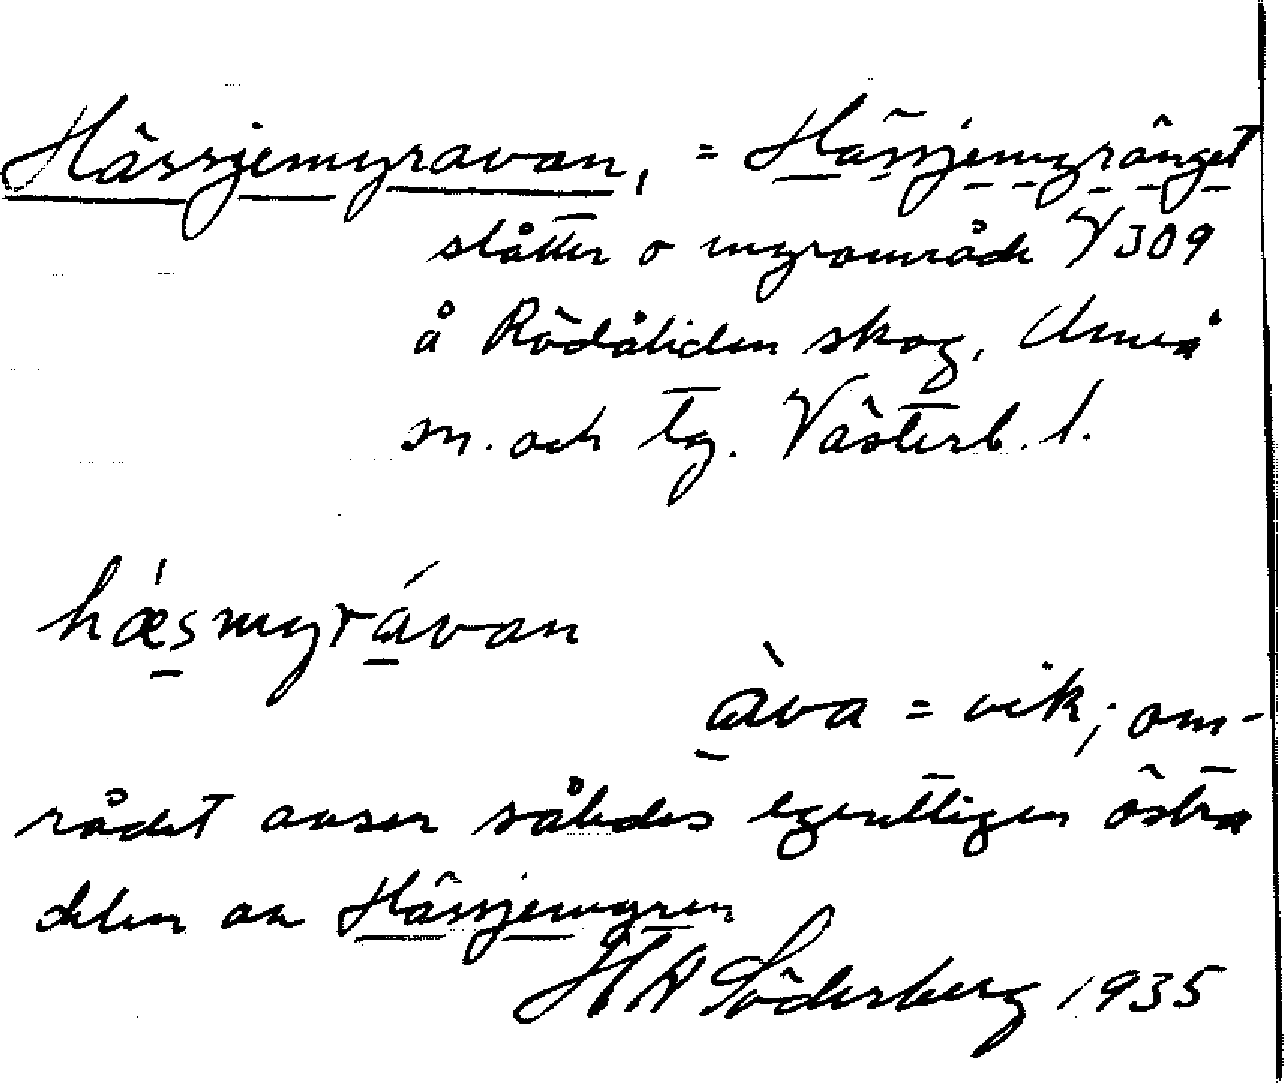 Hässjemyravan, = Hässjemyränget
slåtter o myrområde Y309
å Rödåliden skog, Umeå
sn. och tg. Västerb. l.
hæ̀smyrávan
àva = vik; om-
rådet avser således egentligen östra
delen av Hässjemyren
H W Söderberg 1935